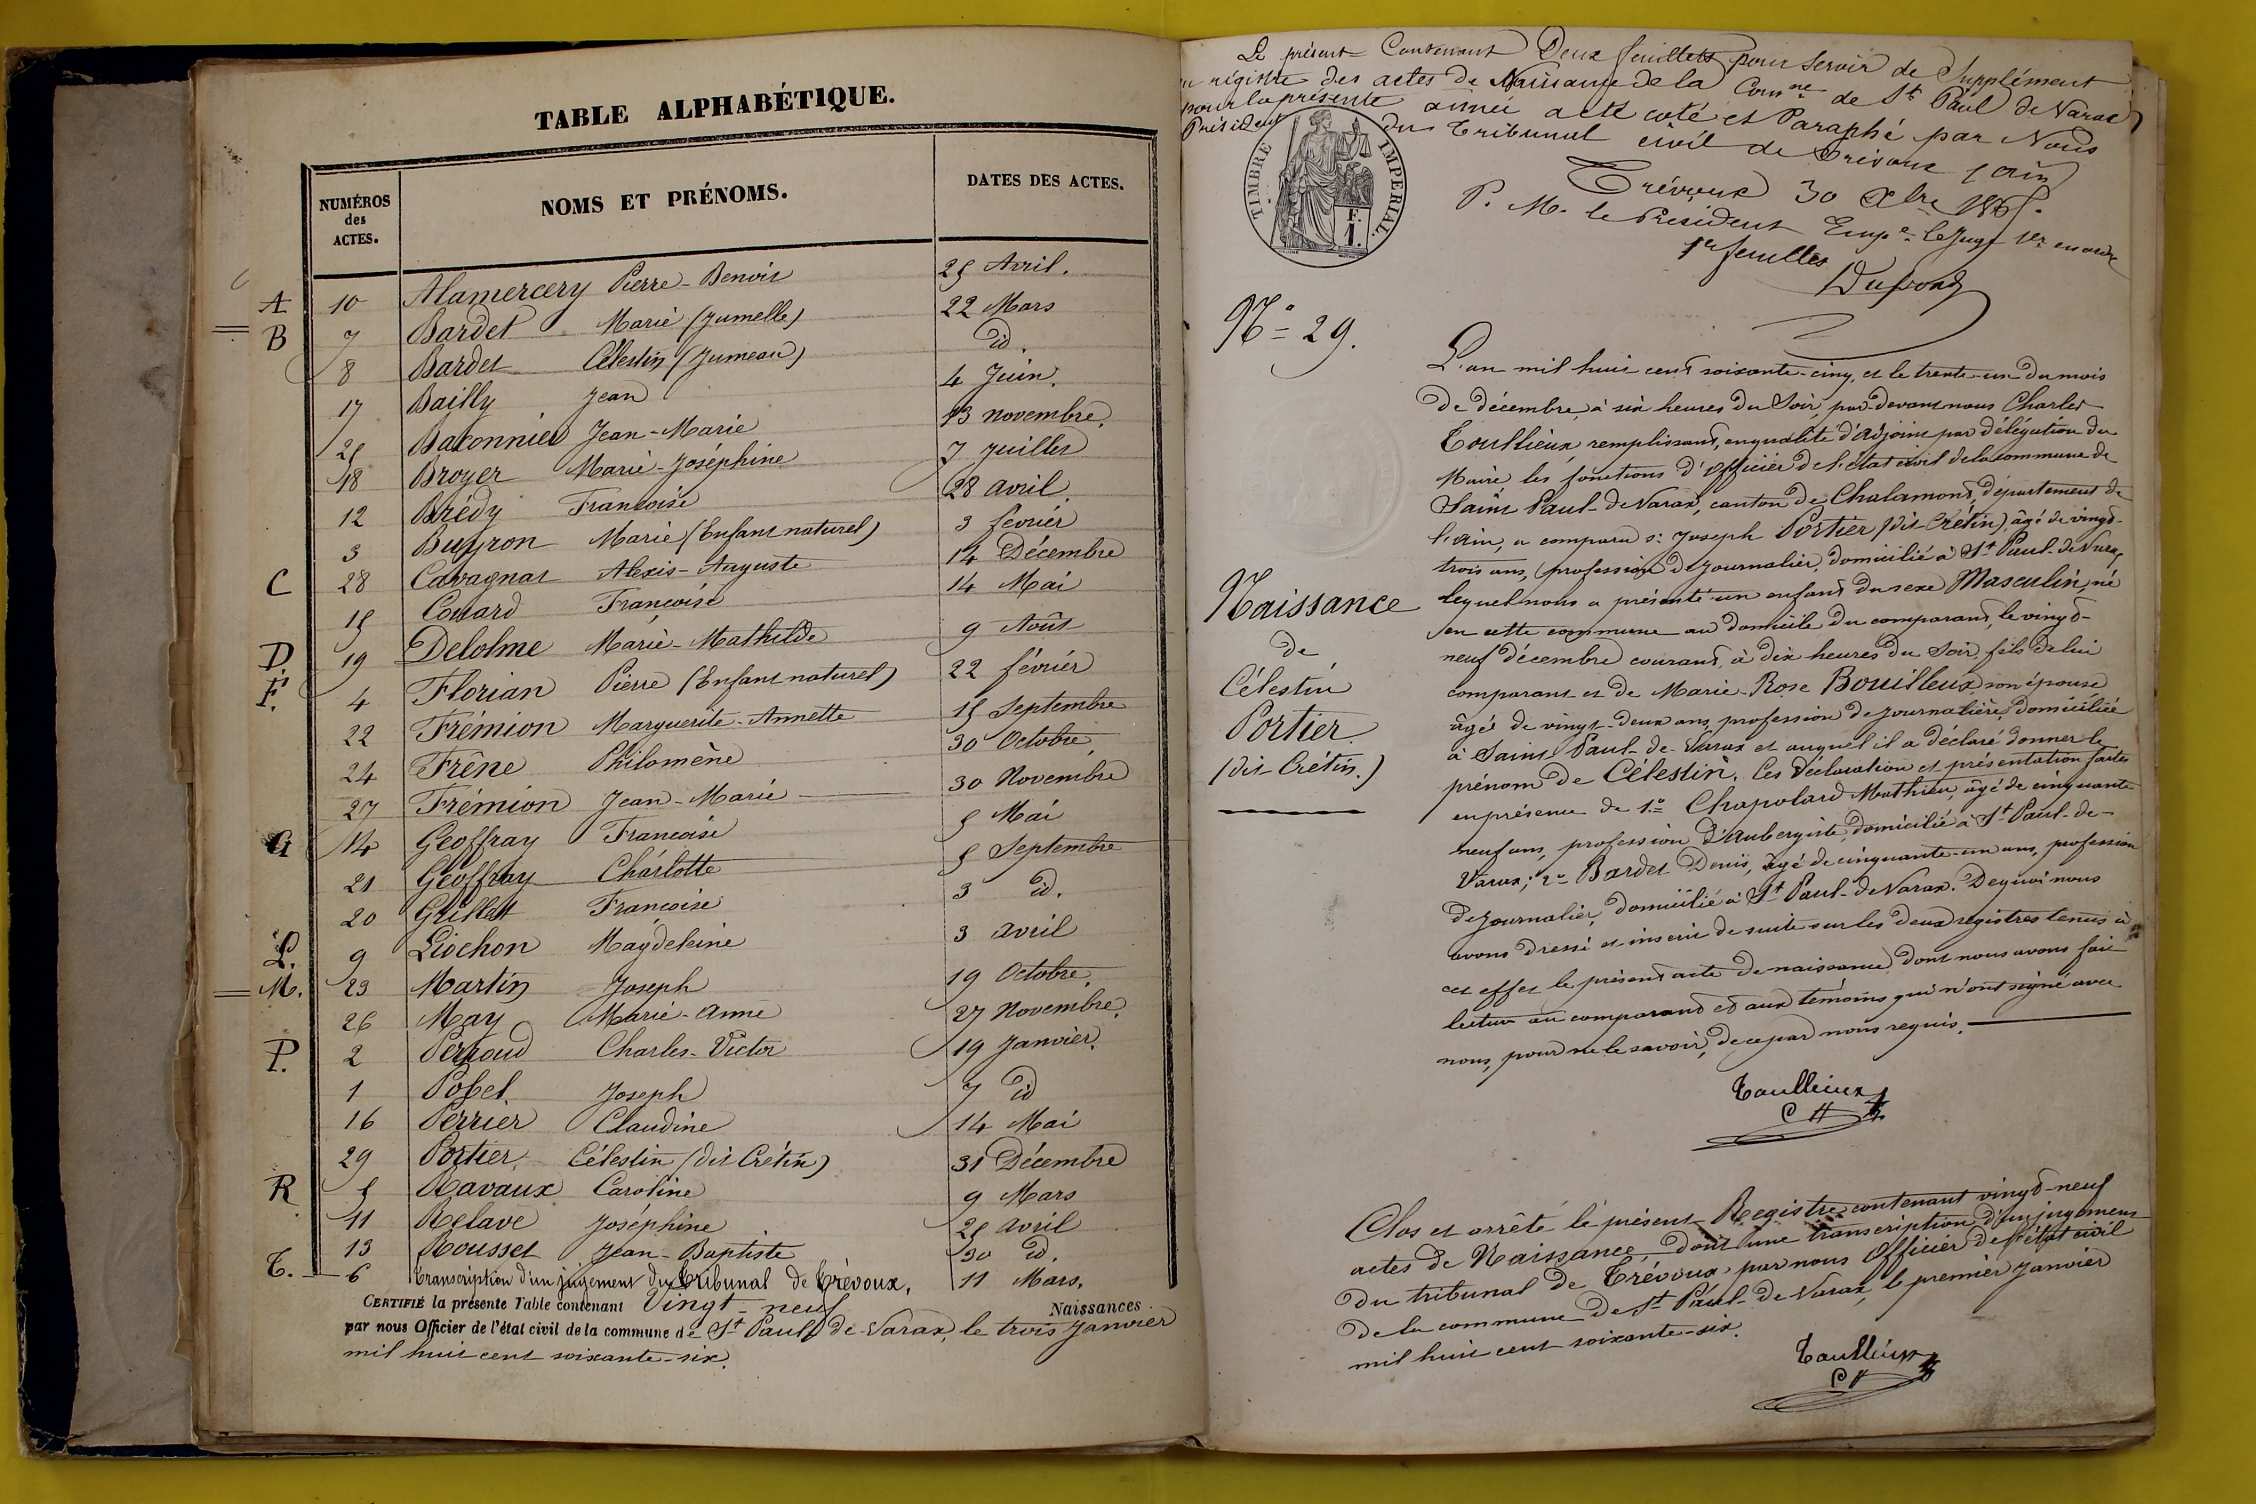 TABLE ALPHABÉTIQUE.
NUMÉROS des ACTES. NOMS ET PRÉNOMS. DATES DES ACTES.
A 10 Alamercery Pierre-Benoit 25 Avril.
B 7 Bardet Marie (Jumelle) 22 Mars
8 Bardet Célestin (Jumeau) id.
17 Bailly Jean 4 Juin.
25 Jean-Marie 13 novembre.
18 Broyer Marie-Joséphine 7 Juillet
12 Brédy Francoise 28 avril.
3 Buyron Marie (Enfant naturel) 3 février
C 28 Cavagnat Alexis-Auguste 14 Décembre
15 Couard Françoise 14 Mai
D. 19 Delolme Marie-Mathilde 9 Août
F. 4 Florian Pierre (Enfant naturel) 22 février
22 Frémion Marguerite-Annette 15 Septembre
24 Frêne Philomène 30 Octobre
27 Frémion Jean-Marie 30 Novembre
G 14 Geoffray Francoise 5 Mai
21 Geoffray Charlotte 5 Septembre
20 Grillet Francoise 3 id.
L. 9 Liochon Magdeleine 3 avril
M. 23 Martin Joseph 19 Octobre.
26 May Marie-Anne 27 Novembre.
P. 2 Perroud Charles-Victor 19 Janvier.
1 Pobel Joseph 7 id
16 Perrier Claudine 14 Mai
29 Portier Célestin (dit Crétin) 31 Décembre
R 5 Ravaux Caroline 9 Mars
11 Relave Joséphine 25 avril
13 Rousset Jean-Baptiste 30 id.
T. 6 Transcription d'un jugement du Tribunal de Trévoux. 11 Mars.
CERTIFIÉ la présente Table contenant Vingt-neuf Naissances
par nous Officier de l'état civil de la commune de St Paul-de-Varax, le trois Janvier
mil huit cent soixante-six.
Le présent Contenant Deux feuillets pour servir de Supplément
registre des actes de Naissance de la Comne de St Paul de Varax
pour la présente année a été coté et Paraphé par Nous
Président du Tribunal civil de Trévoux (ain)
Trévoux 30 Xbre 1865.
P. M. le Président Empé le Juge 1er
1er feuillet
TIMBRE IMPÉRIAL.
F.
1.
No 29.
Naissance
de
Célestin
Portier
(dit Crétin.)
L'an mil huit cent soixante-cinq, et le trente-un du mois
de décembre, à six heures du Soir, par-devant nous Charles
Toullieux, remplissant, en qualité d'adjoint par délégation du
Maire, les fonctions d'officier de l'état civil de la commune de
Saint Paul-de Varax, canton de Chalamont, département de
l'Ain, a comparu sr Joseph Portier (dit Crétin), âgé de vingt-
trois ans, profession de journalier, domicilié à St Paul-de Varax,
lequel nous a présenté un enfant du sexe Masculin, né
en cette commune au domicile du comparant, le vingt-
neuf décembre courant, à dix heures du Soir, fils de lui
comparant et de Marie-Rose Bouilleux son épouse
âgée de vingt-deux ans, profession de journalière, domiciliée
à Saint Paul-de-Varax et auquel il a déclaré donner le
prénom de Célestin. Ces déclaration et présentation faites
en présence de 1.o Chapolard Mathieu, âgé de cinquante-
neuf ans, profession d'Aubergiste, domicilié à St Paul-de-
Varax; 2o Bardet Denis, âgé de cinquante-un ans, profession
de journalier, domicilié à St Paul-de Varax. De quoi nous
avons dressé et inscrit de suite sur les deux registres tenus à
cet effet le présent acte de naissance dont nous avons fait
lecture au comparant et aux témoins qui n'ont signé avec
nous, pour ne le savoir, de ce par nous requis.
Toullieux
Clos et arrêté le présent Registre contenant vingt-neuf
actes de Naissance, dont une transcription d'un jugement
du tribunal de Trévoux, par nous Officier de l'état civil
de la commune de St Paul-de Varax, le premier Janvier
mil huit cent soixante-six.
Toullieux